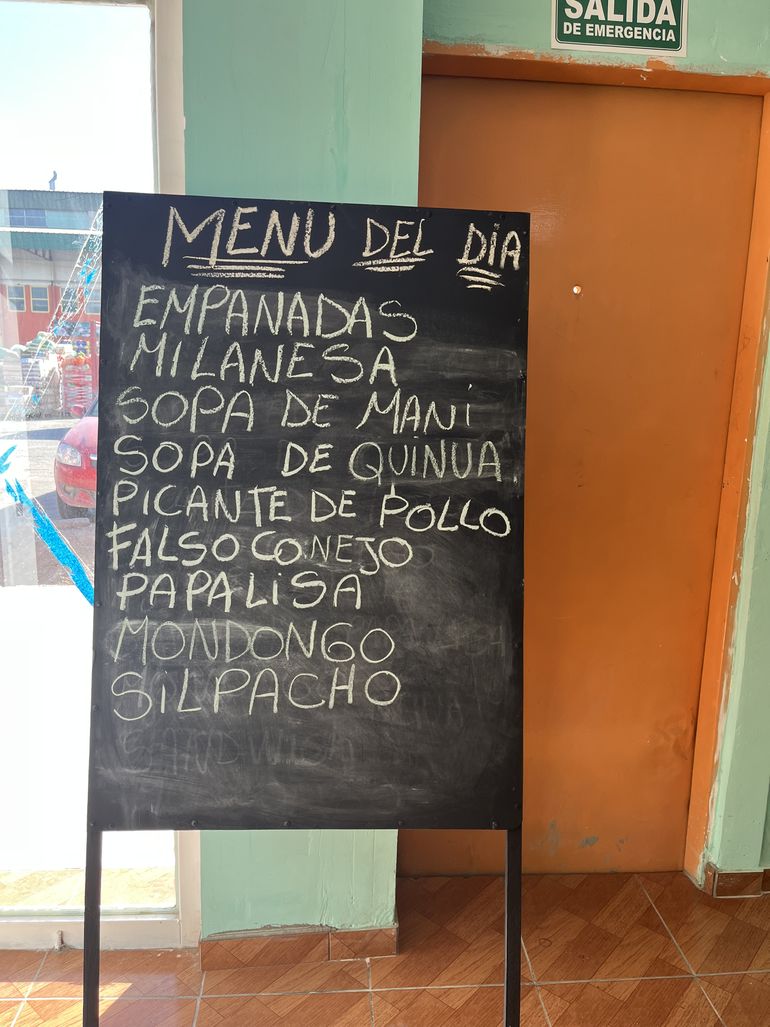 SALIDA
DE EMERGENCIA
MENU DEL DIA
EMPANADAS
MILANESA
SOPA DE MANÍ
SOPA DE QUINUA
PICANTE DE POLLO
FALSO CONEJO
PAPALISA
MONDONGO
SILPACHO